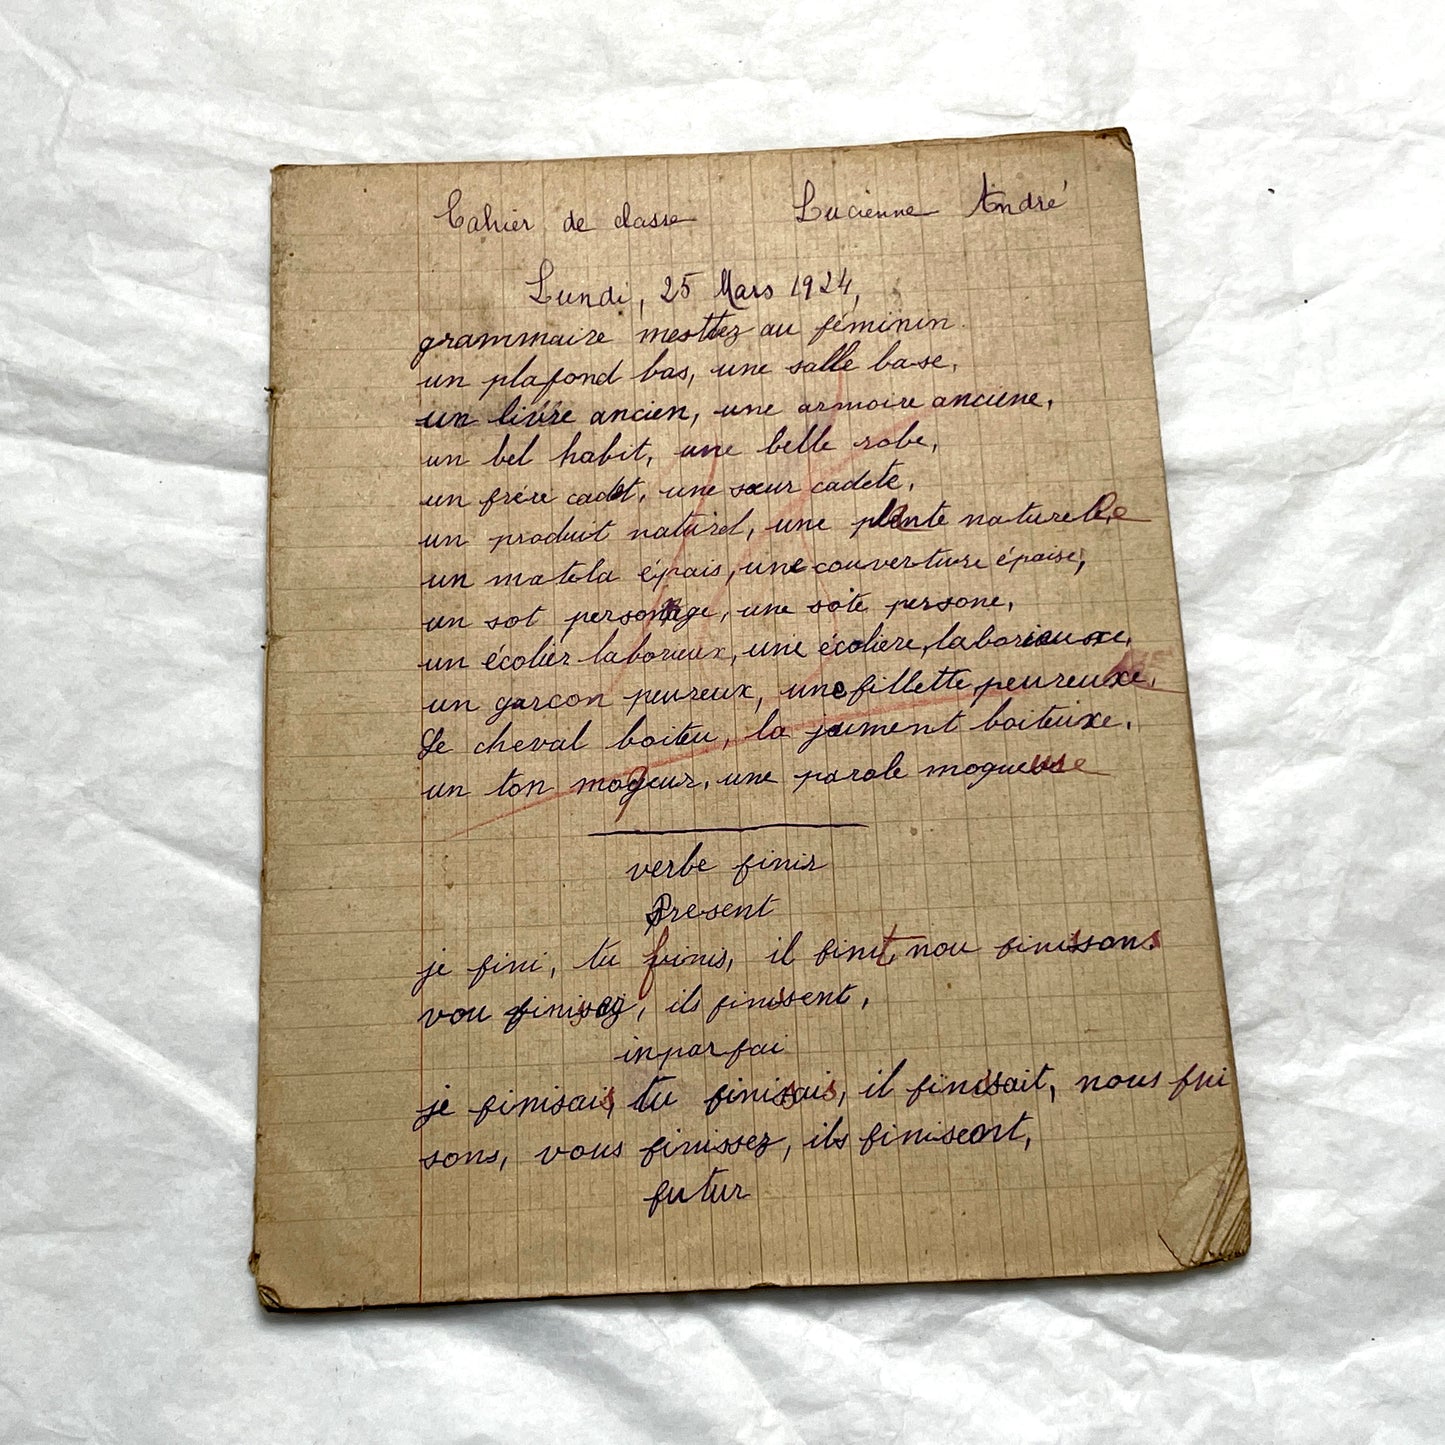 Cahier de classe Lucienne André
Lundi, 25 Mars 1924,
grammaire mesttez au féminin.
un plafond bas, une salle base,
un livre ancien, une armoire anciene,
un bel habit, une belle robe,
un frère cadet, une sœur cadete,
un produit naturel, une plante naturelle
un matela épais, une couverture épaise,
un sot personage, une sote persone,
un écolier laborieux, une écolière, laborieuxe,
un garcon peureux, une fillette peureuxe,
Le cheval boiteu, la jument boiteuxe,
un ton moqeur, une parole moqueuse
verbe finir
Present
je fini, tu finis, il finit, nou finissons
vou finisez, ils finisent,
inparfai
je finisais, tu finissais, il finisait, nous fni
sons, vous finissez, ils finiseont,
futur